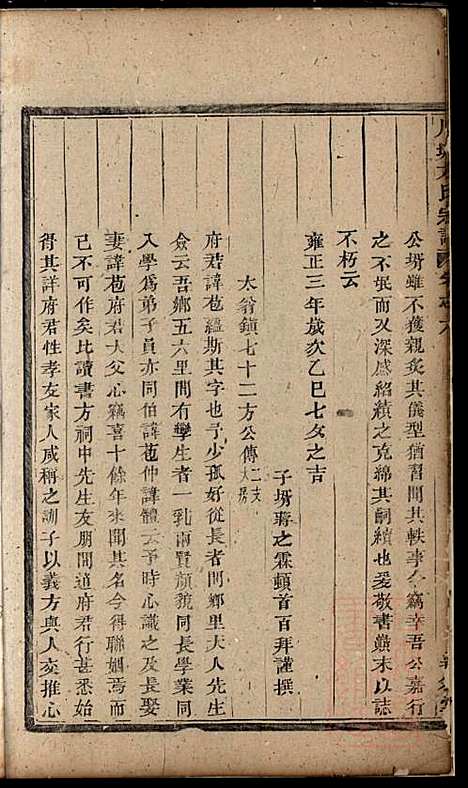 公壻雖不獲親炙其儀型猶習聞其軼事今竊幸吾公嘉行
之不泯而又深感紹績之克綿其嗣續也爰敬書顛末以誌
不朽云
雍正三年歲次乙巳七夕之吉
子壻蔣之霖頓首百拜謹撰
太翁鎮七十二方公傳二支大房
府君諱苞蘊斯其字也予少孤好從長者問鄉里大人先生
僉云吾鄉五六里間有孿生者一乳兩賢顏貌同長學業同
入學爲弟子員亦同伯諱苞仲諱體云予時心識之及長娶
妻諱苞府君大父心竊喜十餘年來聞其名今得聯姻焉而
己不可作矣比讀書方祠中先生友朋間道府君行甚悉始
得其詳府君性孝友家人咸稱之訓子以義方與人交推心